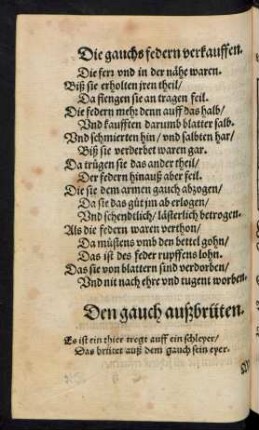 Die gauchs federn verkauffen.
Die ferr vnd in der nähe waren.
Biß sie erholten jren theil/
Da fiengen sie an tragen feil.
Die federn mehr denn auff das halb/
Vnd kaufften darumb blatter salb.
Vnd schmierten hin/ vnd salbten har/
Biß sie verderbet waren gar.
Da trügen sie das ander theil/
Der federn hinauß aber feil.
Die sie dem armen gauch abzogen/
Da sie das güt jm ab erlogen/
Vnd schendtlich/ lästerlich betrogen.
Als die federn waren verthon/
Da müstens vmb den bettel gohn/
Das ist des feder rupffens lohn.
Das sie von blattern sind verdorben/
Vnd nit nach ehre vnd tugent worben.
Den gauch außbrüten.
Es ist ein thier tregt auff ein schleyer/
Das brütet auß dem gauch sein eyer.